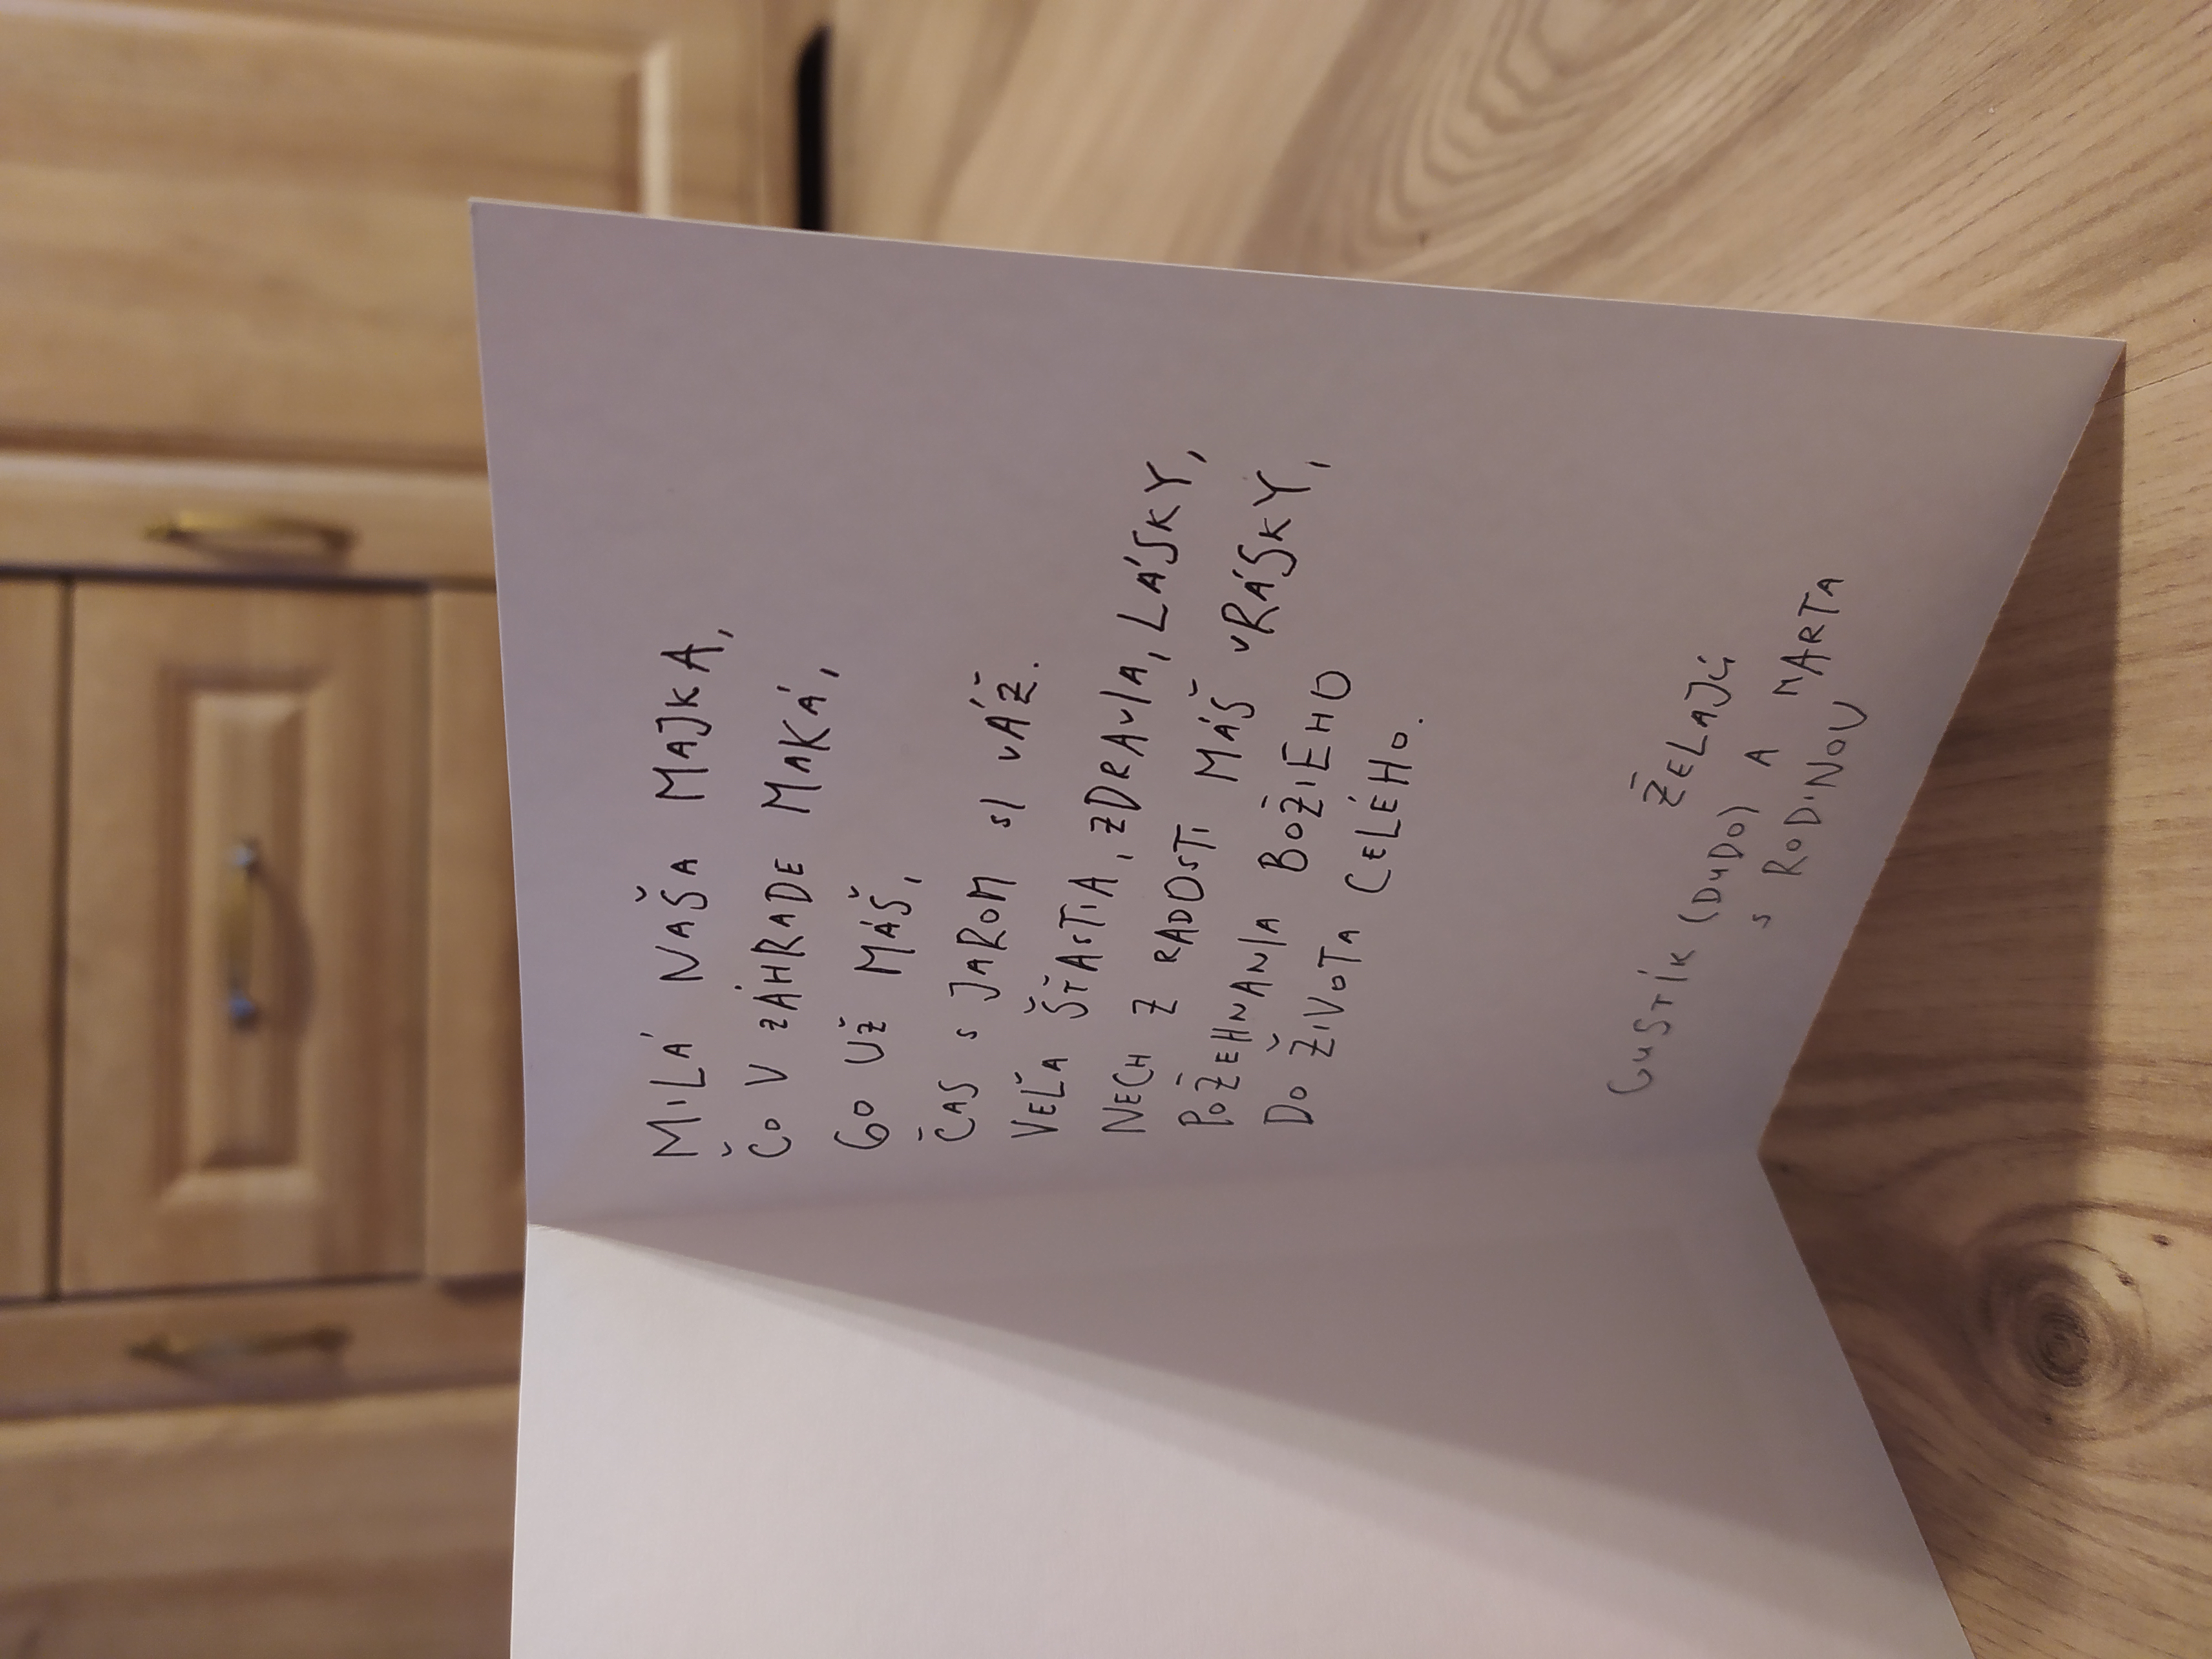 MILÁ NAŠA MAJKA,
ČO V ZÁHRADE MAKÁ,
60 UŽ MÁŠ,
ČAS S JAROM SI VÁŽ.
VEĽA ŠŤASTIA, ZDRAVIA, LÁSKY,
NECH Z RADOSTI MÁŠ VRÁSKY,
POŽEHNANIA BOŽIEHO
DO ŽIVOTA CELÉHO.
ŽELAJÚ
GUSTÍK (DUDO) A MARTA
S RODINOU